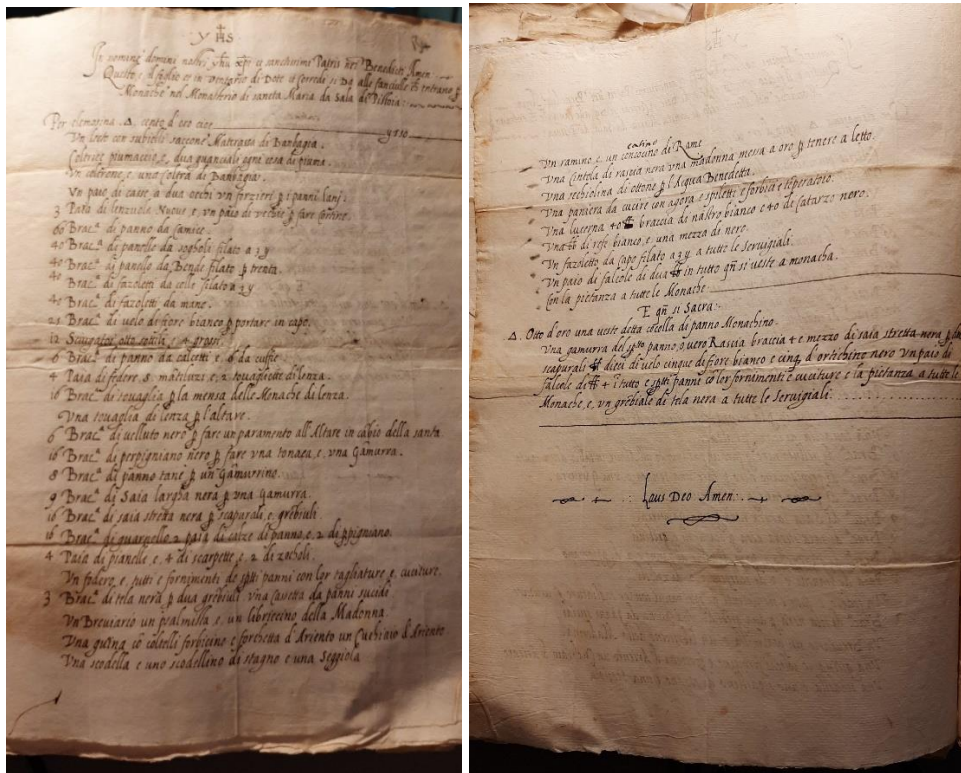 y HS
In nomine domini nostri yhu xpi et sanctissimi Patris nri Benedicti Amen
Questo e, il foglio et in ventario di Dote et Corredi si Da alle fanciulle ch entrano p
Monache nel Monasterio di sancta Maria da Sala di Pistoia
Per elemosina Δ. cento d'oro cioe
Vn letto con subielli saccone Materassa di Banbagia.
Coltrice piumaccio, e, dua guanciali ogni cosa di piuma.
Vn coltrone e, uno coltra di Banbagia.
Vn paio di casse a dua ochi vn forzieri p i panni lani.
3 Paia di lenzuola Nuove e, vn paio di vechie p fare coltre.
60 Brac.ª di panno da camice.
40 Brac.ª di panelle da sogholi filato a 3 y
40 Brac.ª di panelle da Bende filato p trenta.
40 Brac. di fazoletti da collo filato a 3 y
40 Brac.ª di fazoletti da mane.
25 Brac.ª di uelo di fiore bianco p portare in capo.
12 Sciugatoi otto sottili e 4 grossi.
6 Brac.ª di panno da calcetti e, 6 da cuffie.
4 Paia di federe 5. mantiluzi e, 2 tovagliette di lenza.
16 Brac.ª di tovaglia p la mensa delle Monache di lenza.
Vna tovaglia di lenza p l'altare.
6 Brac.ª di velluto nero p fare un paramento all'Altare in cabio della santa.
16 Brac.ª di perpigniano nero p fare vna tonaca e, vna Gamurra.
8 Brac.ª di panno tane p un Gamurrino.
9 Brac.ª di Saia largha nera p vna Gamurra.
16 Brac.ª di saia stretta nera p scapurali e, grebiuli.
16 Brac.ª di guarnello 2 paia di calze di panno, e, 2 di ppigniano.
4 Paia di pianelle e, 4 di scarpette e, 2 di zocholi.
Vn fodero e, tutti e fornimenti de sptti panni con lor tagliature e cuciture.
3 Brac.ª di tela nera p dua grebiuli vna Cassetta da panni sucidi
Vn Breviario un psalmista e, un libriccino della Madonna.
Vna co coltelli forbicino e forchetta d'Ariento un Cuchiaio d'Ariento
Vna scodella e uno scodellino di stagno e una Seggiola
catino
Vn ramino e, un concolino di Rame
Vna Cintola di rascia nera vna madonna messa a oro p tenere a letto.
Vna sechiolina di ottone p l'Acqua Benedetta.
Vna paniera da cucire con agora e spiletti e forbici e tiperatoio.
Vna lucerna 40 braccia di nastro bianco e 40 di catarzo nero.
Vna di refe bianco, e, una mezzo di nero.
Vn fazoletto da capo filato a 3 y a tutte le servigiali.
Vn paio di falcole di dua in tutto qñ si veste a monacha.
Con la pietanza a tutte le Monache
E qñ si Sacra:
Δ. Otto d'oro una veste detta cocolla di panno Monachino.
Vna gamurra del sptto panno, o vero Rascia braccia 4 e mezzo di saia stretta nera p dua
scapurali dieci di velo cinque di fiore bianco e cinq d'ortichino nero Vn paio di
falcole di 4 i tutto e sptti panni co lor fornimenti e cuciture e la pietanza a tutte le
Monache e, vn grebiale di tela nera a tutte le Servigiali
Laus Deo Amen: